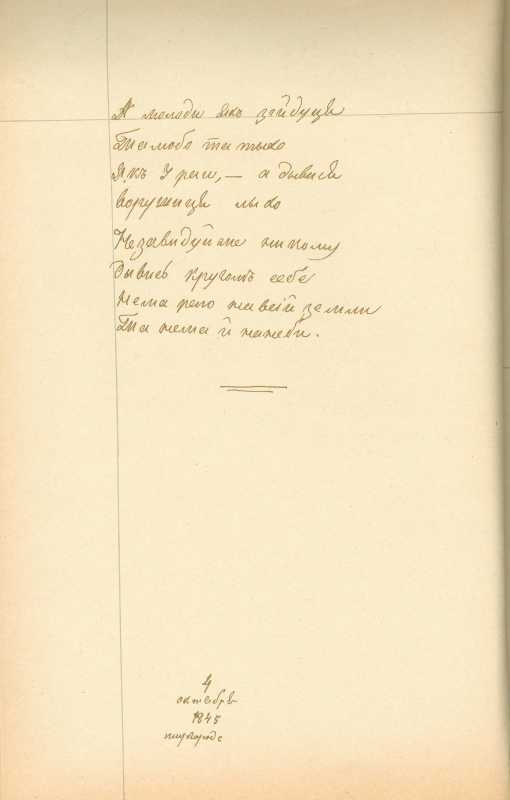 А молоди якъ зійдуця
Та любо та тыхо
Якъ у раи, — а дывися
Ворушиця лыхо
Незавидуйже никому
Дывись кругомъ себе
Нема раю на всій земли
Та нема й нанеби.
4
октября
1845